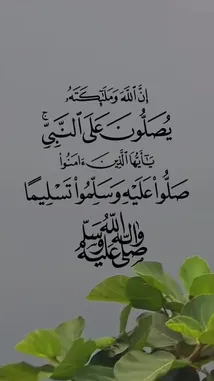 إِنَّ ٱللَّهَ وَمَلَـٰٓئِكَتَهُۥ
يُصَلُّونَ عَلَى ٱلنَّبِىِّ ۚ
يَـٰٓأَيُّهَا ٱلَّذِينَ ءَامَنُوا۟
صَلُّوا۟ عَلَيْهِ وَسَلِّمُوا۟ تَسْلِيمًا
صلى الله عليه وآله وسلم